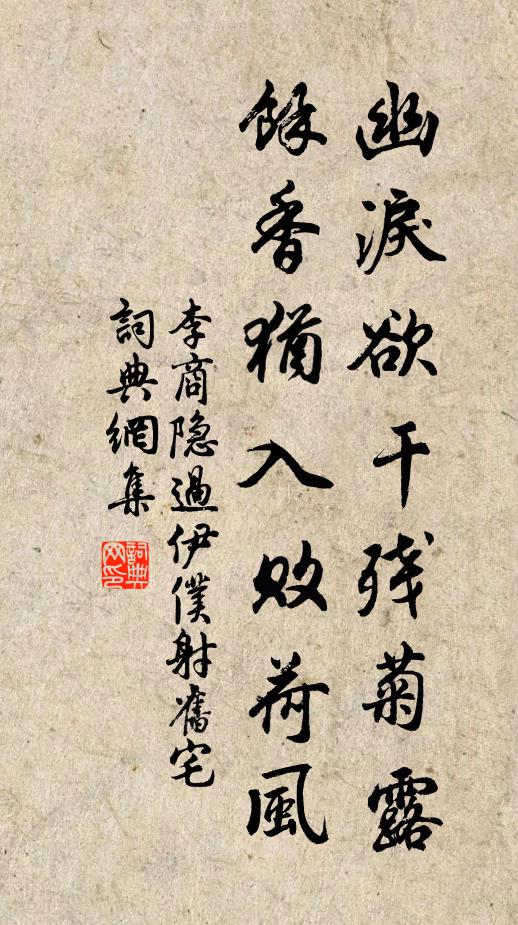 幽淚欲干残菊露
餘香猶入敗荷風
李商隐過伊僕射舊宅
詞典網集
詞典網印